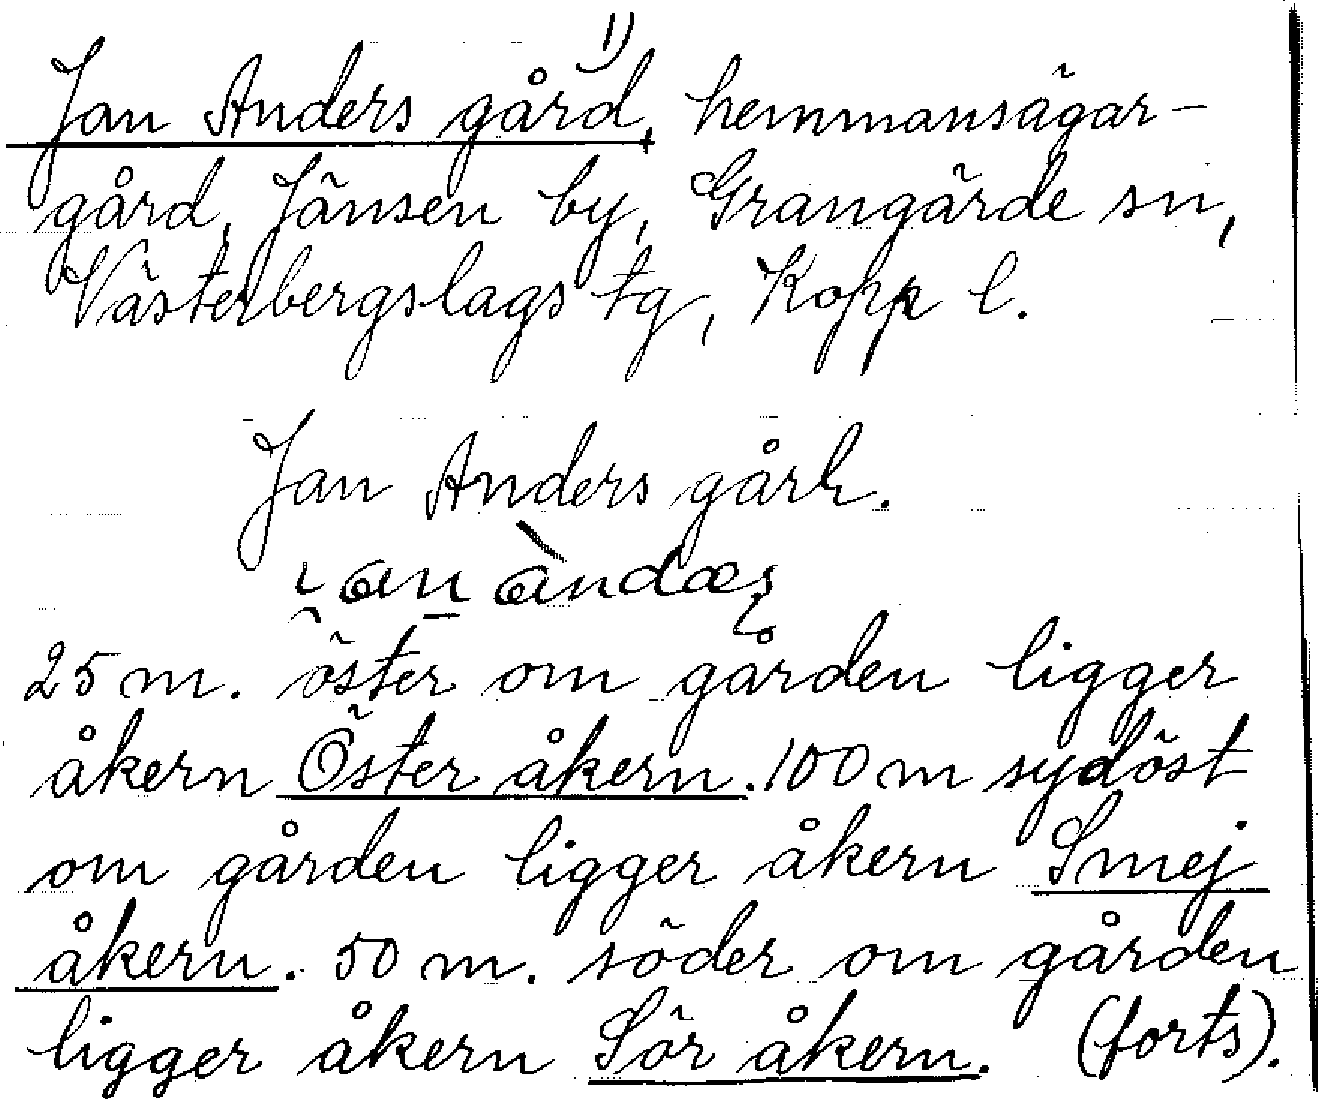 Jan Anders gård, 1) hemmansägar-
gård, Jänsen by, Grangärde sn,
Västerbergslags tg, Kopp l.
Jan Anders gårk.
25 m. öster om gården ligger
åkern Öster åkern. 100 m sydöst
om gården ligger åkern Smej
åkern. 50 m. söder om gården
ligger åkern Sör åkern. (forts).